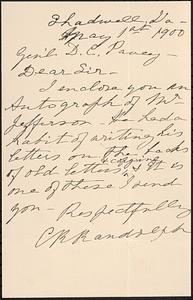 Shadwell, Va
May 1st 1900
Genl. D. C. Pavey -
Dear Sir -
I enclose you an
Autograph of Mr
Jefferson - He had a
habit of writing his
letters on the backs
of old letters & copying it is
one of these I send
you - Respectfully
C R Randolph